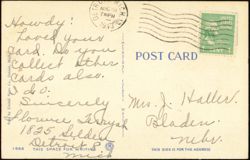 Howdy:
Loved your
card. Do you
collect other
cards also.
I do.
Sincerely
Florence
1825
Detroit
Mich
POST CARD
Mrs. J. Haller.
Bladen
Nebr.
THIS SPACE FOR WRITING
THIS SIDE IS FOR THE ADDRESS